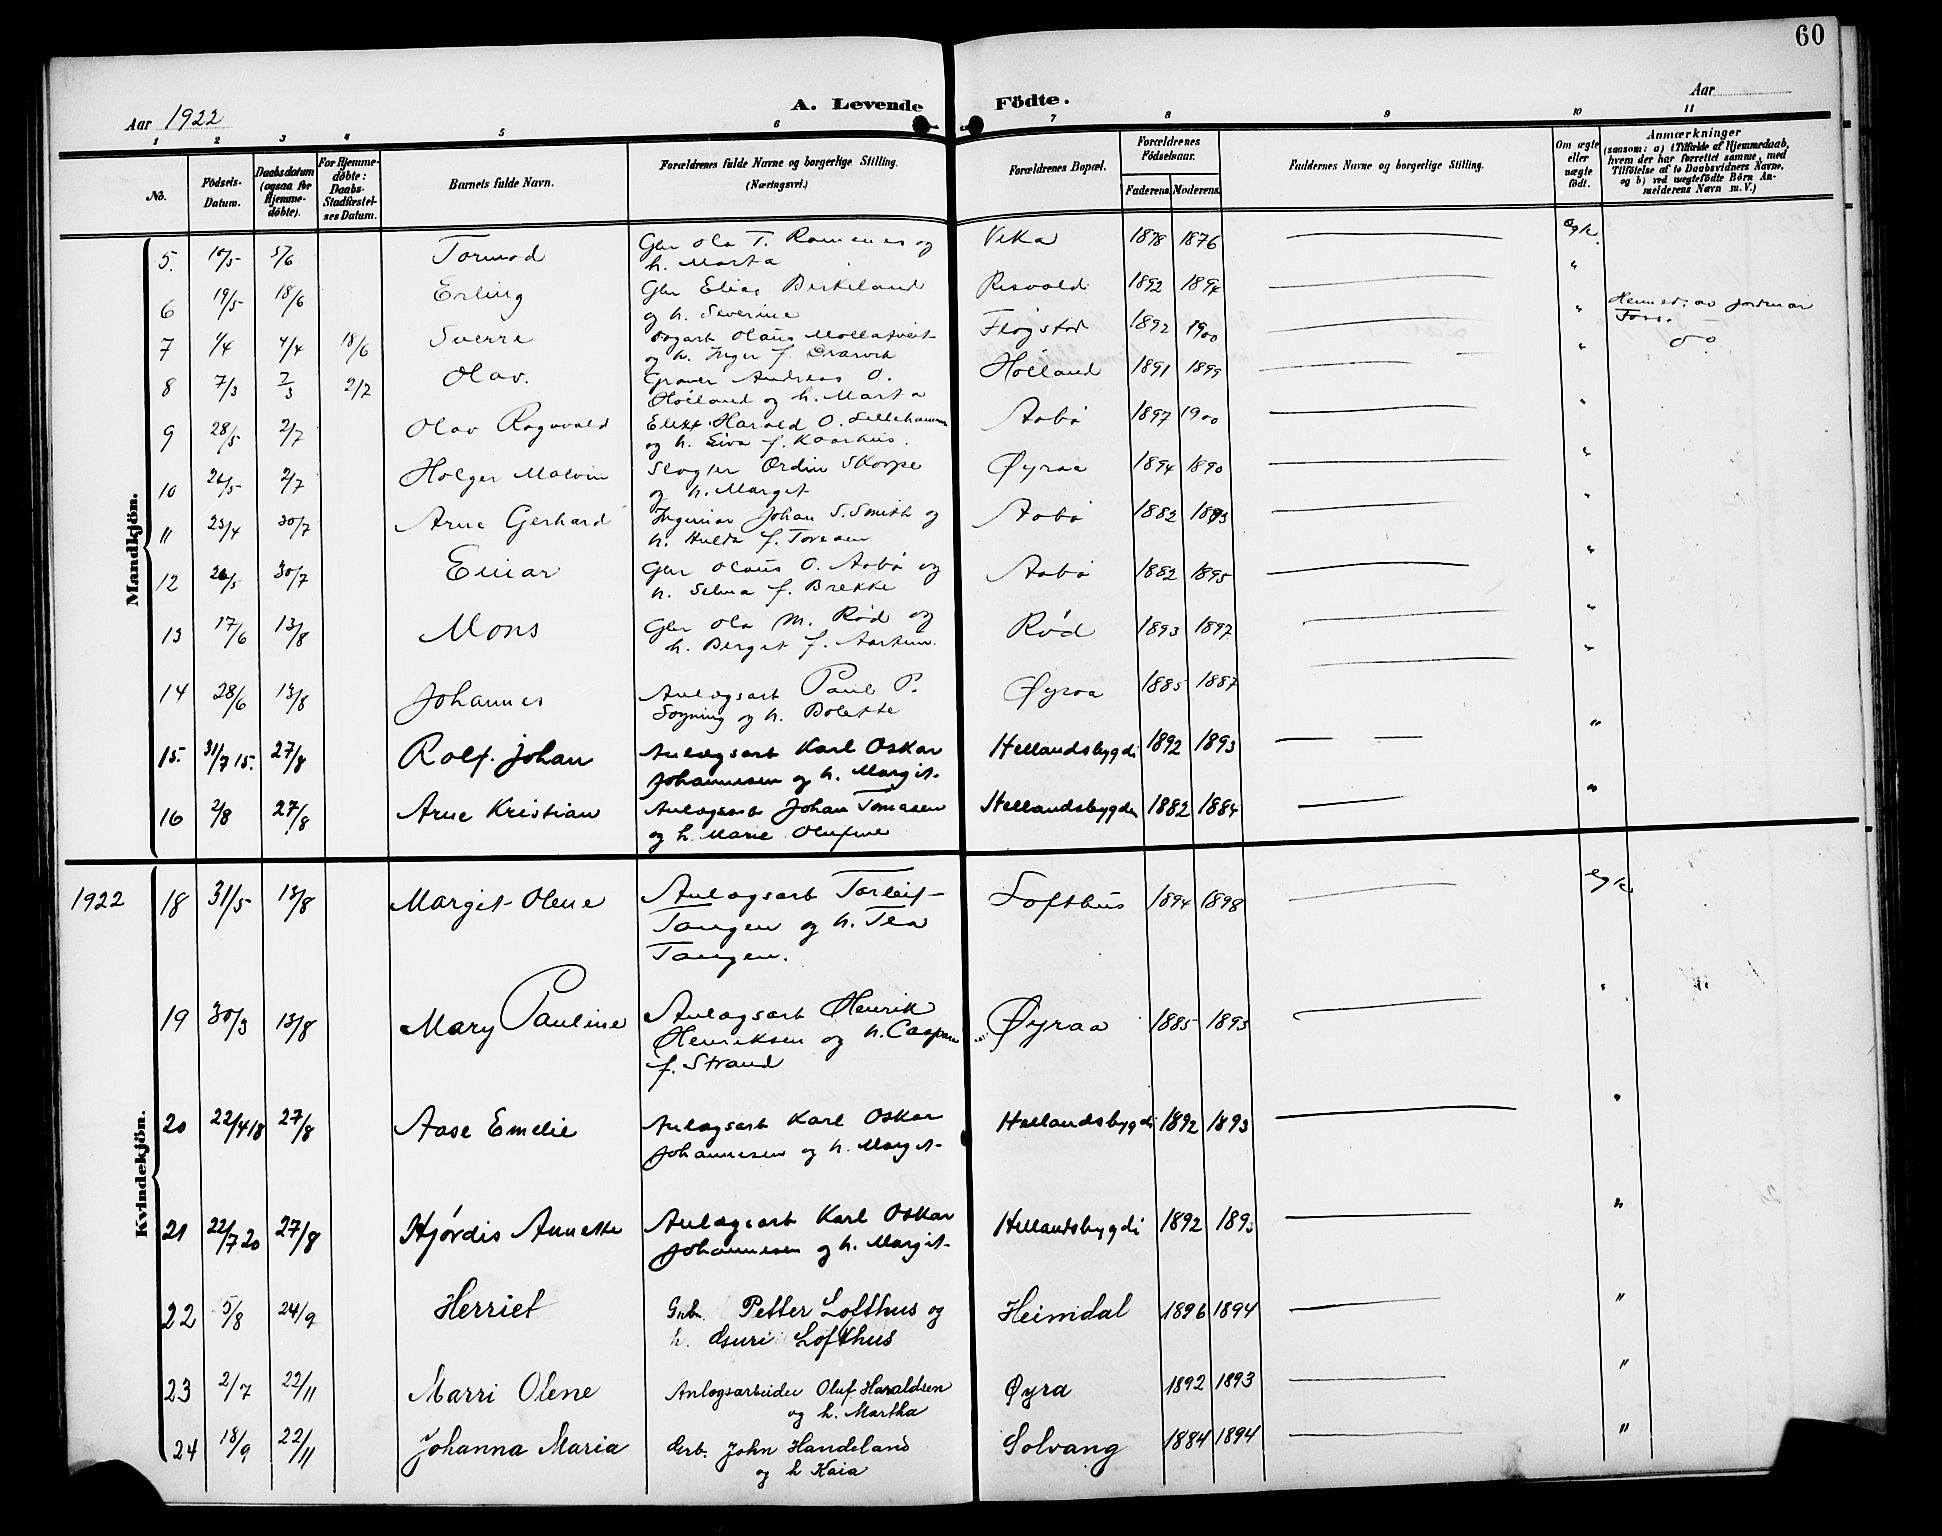 60
Aar 1922
A. Levende Födte.
Aar
1 2 3 4 5 6 7 8 9 10 11
No.
Födsels-Datum.
Daabsdatum (ogsaa for Hjemmedöbte).
For Hjemmedöbte: Daabs-Stadfæstelses Datum.
Barnets fulde Navn.
Forældrenes fulde Navne og borgerlige Stilling. (Næringsvei.)
Forældrenes Bopæl.
Forældrenes Födselsaar.
Faderens. Moderens.
Faddernes Navne og borgerlige Stilling.
Om ægte eller uægte födt.
Anmærkninger (saasom: a) i Tilfælde af Hjemmedaab, hvem der har forrettet samme, med Tilföielse af to Daabsvidners Navne, og b) ved uægtefödte Börn Anmelderens Navn m. V.)
Mandkjön.
5. 5/6 Tormod Gbr Ola T. Ramenes og Vika 1878 1876 egt.
h. Marta
6 19/5 18/6 Erling Gbr Elias Birkeland Risvold 1892 "
og h. Severine
7 1/4 4/4 18/6 Sverre Olaus Mollatveit Fløgstad 1892 1900 " Hjemmed. av jordmor
og h. Inger f.
8 7/3 7/3 2/7 Olav. Graver Andreas O. Höiland 1891 1899 " do
Höiland og h. Marta
9 28/5 2/7 Olav Ragnvald Harald O. Lillehammer Aabø 1897 1900 "
og h. f. Kaarhus.
10 26/5 2/7 Holger Malvin Slagter Ordin Skorpe Øyraa 1894 1890 "
og h. Marget
11 23/4 30/7 Arne Gerhard Ingeniør Johan S. Smith og Aabø 1882 1883 "
h. Hulda f. Toresen
12 26/5 30/7 Einar Gbr Olaus O. Aabø og Aabø 1882 1895 "
h. Selma f. Brekke
13 17/6 13/8 Mons Gbr Ola M. Rød og Rød 1893 1897 "
h. Berget f.
14 28/6 13/8 Johannes Anlægsarb Paul P. Øyraa 1885 1887 "
Sogning og h. Bolette
15. 31/7 15. 27/8 Rolf. Johan Anlægsarb Karl Oskar Hellandsbygdi 1892 1893 "
Johannesen og h. Margit
16 2/8 27/8 Arne Kristian Anlægsarb Johan Tomasen Hellandsbygdi 1882 1884 "
og h. Marie Olufine
Kvindekjön.
1922 18 31/5 13/8 Margit Olene Anlægsarb Torleif Lofthus 1894 1898 egte
Tangen og h. Tea
Tangen.
19 30/3 13/8 Mary Pauline Anlægsarb Henrik Øyraa 1885 1893 "
Henriksen og h.
f. Strand
20 22/4 18 27/8 Aase Emelie Anlægsarb Karl Oskar Hellandsbygdi 1892 1893 "
Johannesen og h. Marget
21 22/7 20 27/8 Hjørdis Annette Anlægsarb Karl Oskar Hellandsbygdi 1892 1893 "
Johannesen og h. Margit
22 5/8 24/9 Herriet Gbr. Petter Lofthus og Heimdal 1896 1894 "
h. Guri Lofthus
23 2/7 22/11 Marri Olene Anlegsarbeider Oluf Haraldsen Øyra 1892 1893 "
og h. Martha
24 18/9 22/11 Johanna Maria Gbr. John Handeland Solvang 1884 1894 "
og h Kaia